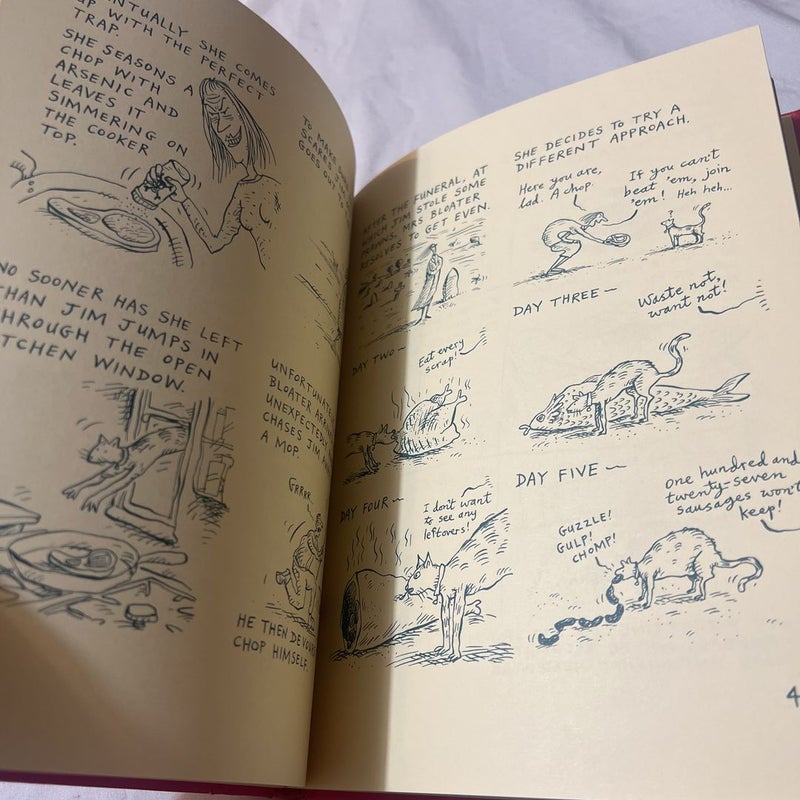 EVENTUALLY SHE COMES
UP WITH THE PERFECT
TRAP.
SHE SEASONS A
CHOP WITH
ARSENIC AND
LEAVES IT
SIMMERING ON
THE COOKER
TOP.
TO MAKE
SCARE
GOES OUT TO
NO SOONER HAS SHE LEFT
THAN JIM JUMPS IN
THROUGH THE OPEN
KITCHEN WINDOW.
UNFORTUNATELY
BLOATER
UNEXPECTEDLY
CHASES JIM
A MOP.
GRRRR
HE THEN DEVOURS
CHOP HIMSELF.
AFTER THE FUNERAL, AT
WHICH JIM STOLE SOME
PRAWNS, MRS BLOATER
RESOLVES TO GET EVEN.
SHE DECIDES TO TRY A
DIFFERENT APPROACH.
Here you are,
lad. A chop.
If you can't
beat 'em, join
'em! Heh heh...
DAY TWO~
Eat every
scrap!
DAY THREE~
Waste not,
want not!
DAY FOUR~
I don't want
to see any
leftovers!
DAY FIVE~
GUZZLE!
GULP!
CHOMP!
One hundred and
twenty-seven
sausages won't
keep!
4